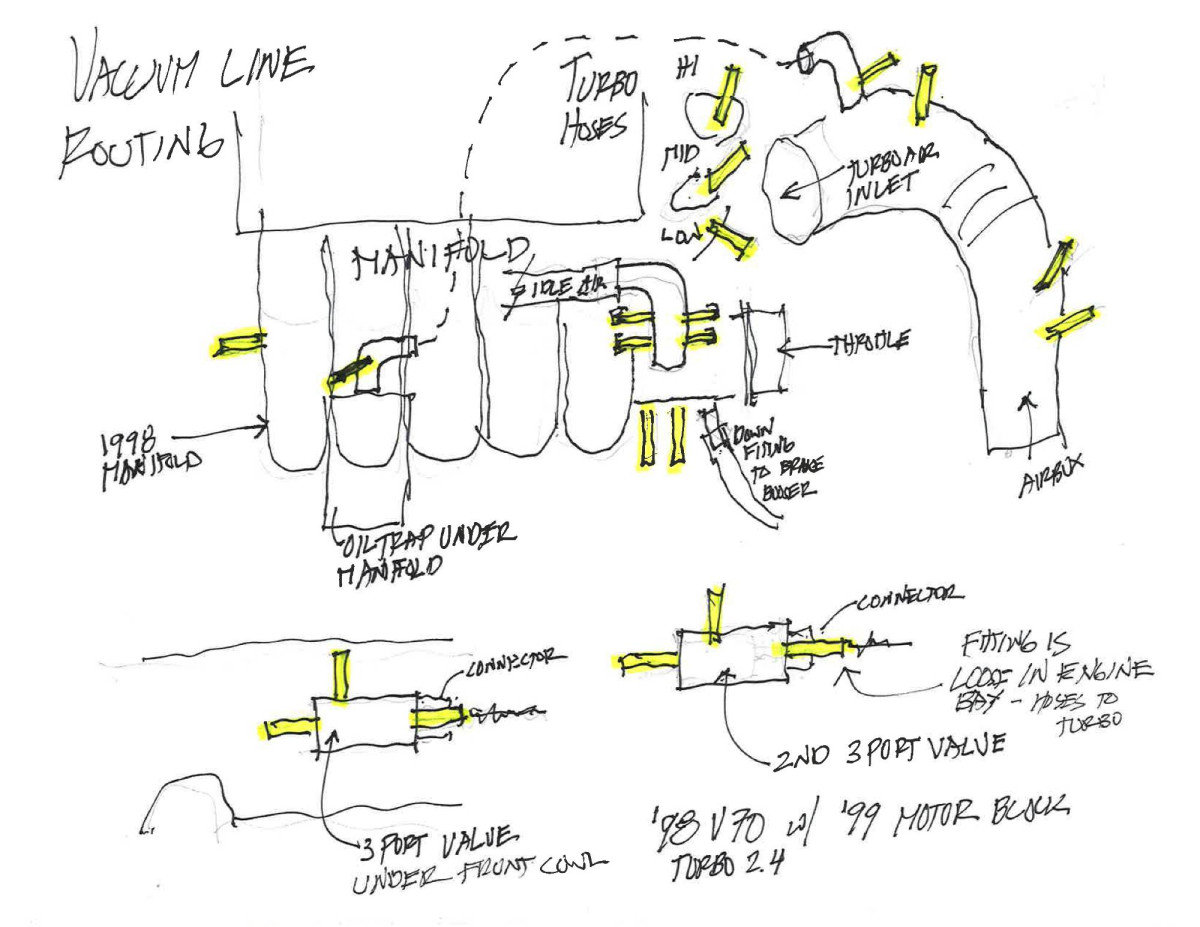 VACUUM LINE
ROUTING
TURBO
HOSES
HI
MID
LOW
TURBO AIR
INLET
MANIFOLD
IDLE AIR
THROTTLE
1998
MANIFOLD
DOWN
FITTING
TO BRAKE
AIRBOX
OIL TRAP UNDER
MANIFOLD
CONNECTOR
3 PORT VALVE
UNDER FRONT COWL
CONNECTOR
FITTING IS
LOOSE IN ENGINE
BAY - HOSES TO
TURBO
2ND 3 PORT VALVE
'98 V70 w/ '99 MOTOR BLOCK
TURBO 2.4